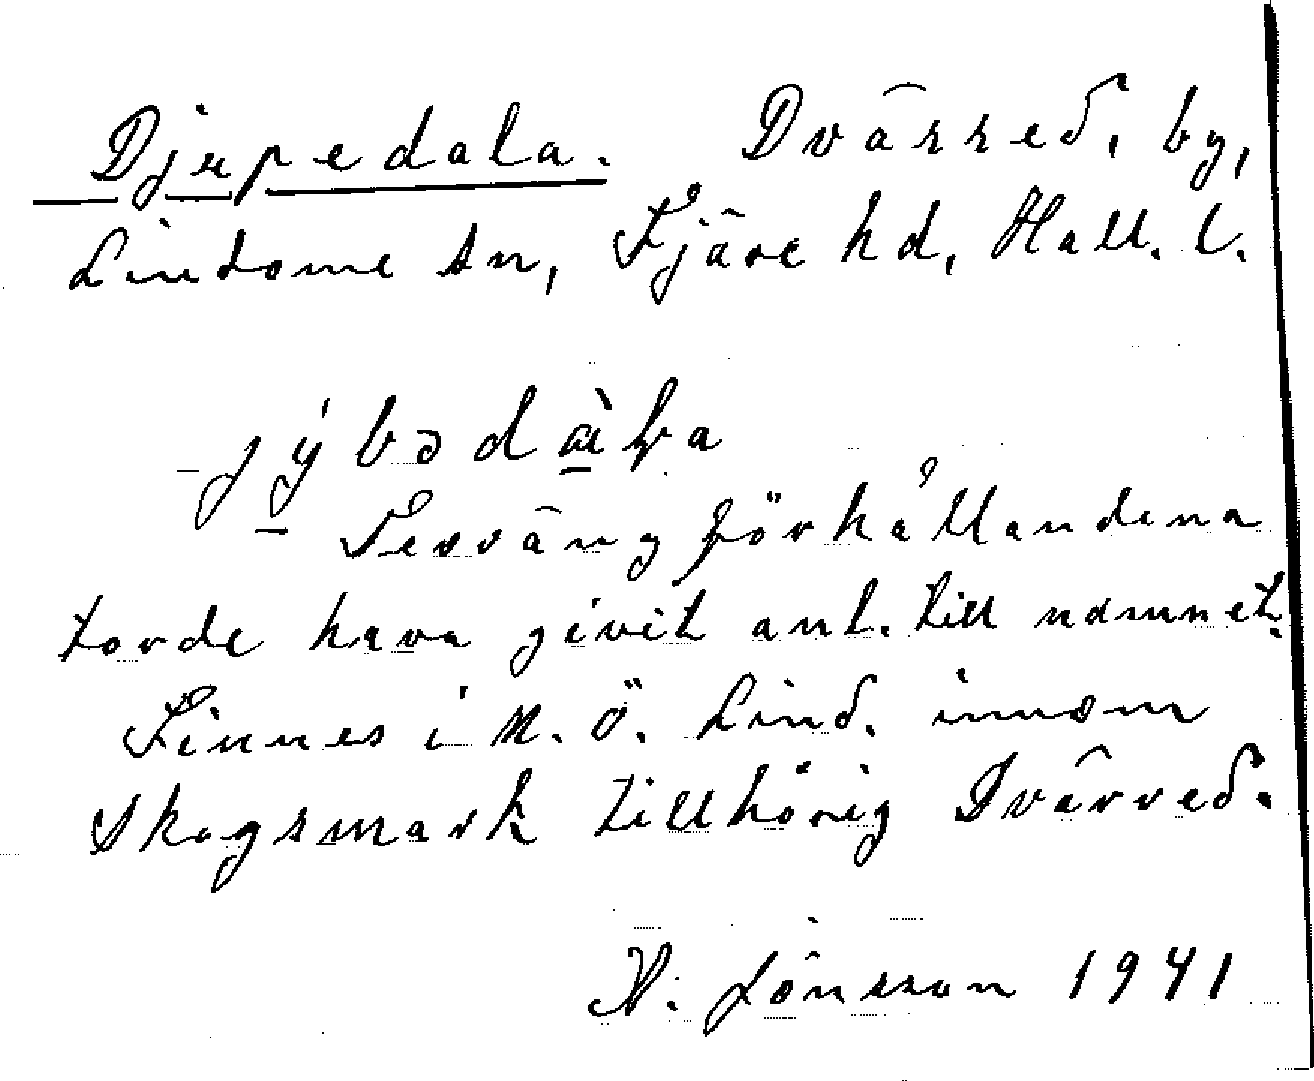 Djupedala. Dvärred, by,
Lindome sn, Fjäre hd, Hall. l.
jýbədàɽa
Terrängförhållandena
torde hava givit anl. till namnet.
Finnes i N. Ö. Lind. inom
skogsmark tillhörig Dvärred.
N. Jönsson 1941